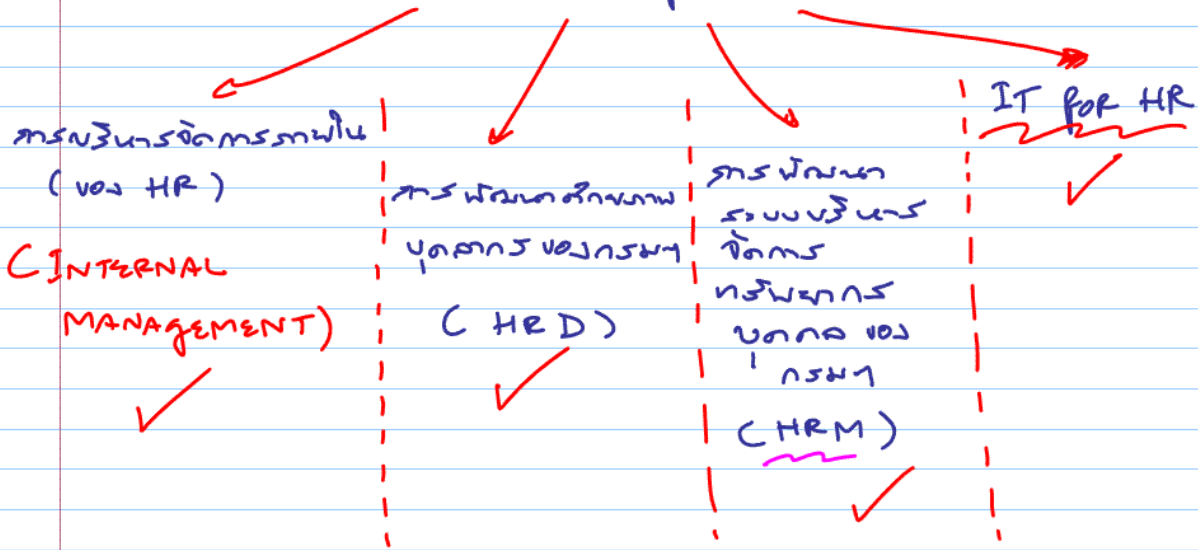 การบริหารจัดการภายใน
(ของ HR)
(INTERNAL
MANAGEMENT)
การพัฒนาศักยภาพ
บุคลากรของกรมฯ
(HRD)
การพัฒนา
ระบบบริหาร
จัดการ
ทรัพยากร
บุคคลของ
กรมฯ
(HRM)
IT FOR HR